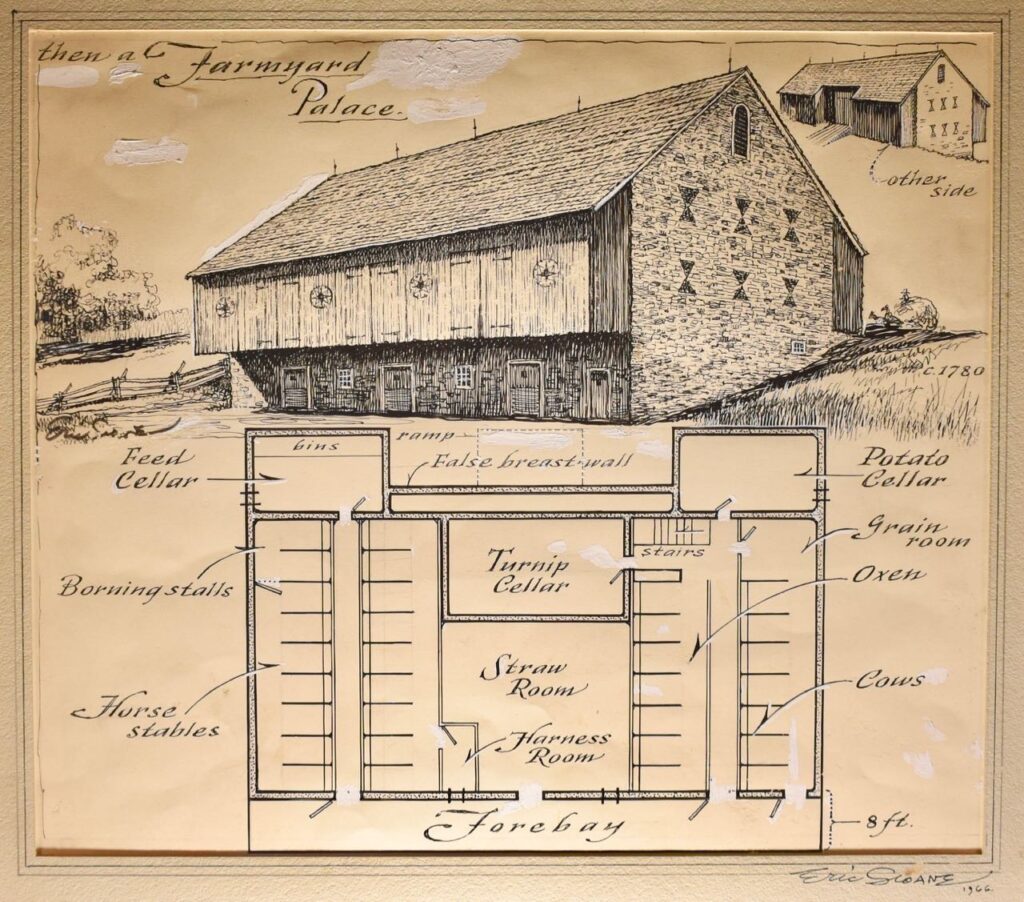 then a Farmyard
Palace.
other
side
c.1780
Feed
Cellar
bins
ramp
False breast-wall
Potato
Cellar
Grain
room
stairs
Turnip
Cellar
Borning stalls
Oxen
Straw
Room
Cows
Horse
stables
Harness
Room
Forebay
8 ft.
Eric Sloane
1966